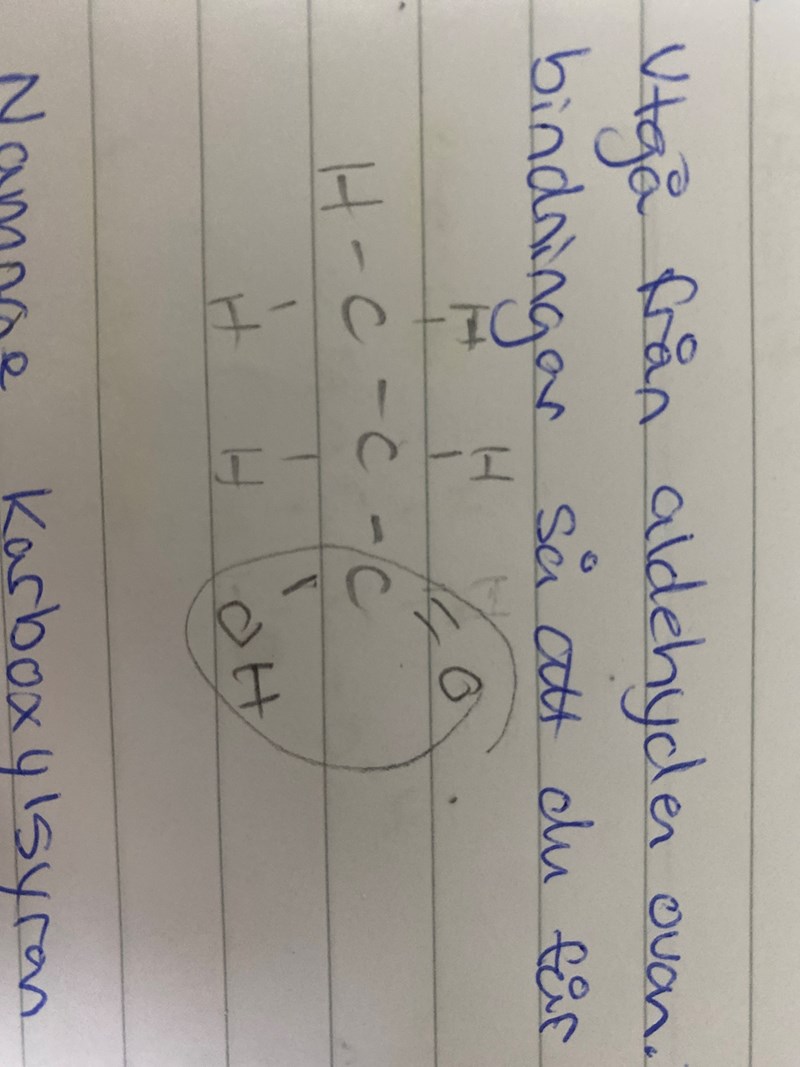 Utgå från aldehyden ovan.
bindningar så att du får
H H H
H - C - C - C = O
H H OH
Namnge Karboxylsyran